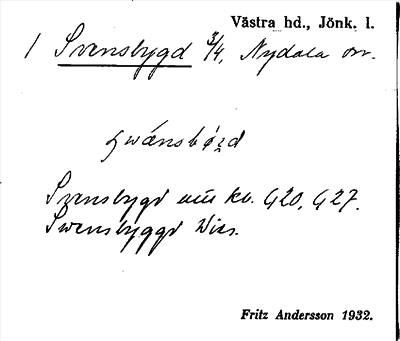 Västra hd., Jönk. l.
1 Svensbygd 3/4, Nydala
Svensbygd kb. G20, G27.
Swensbyggd Wies.
Fritz Andersson 1932.